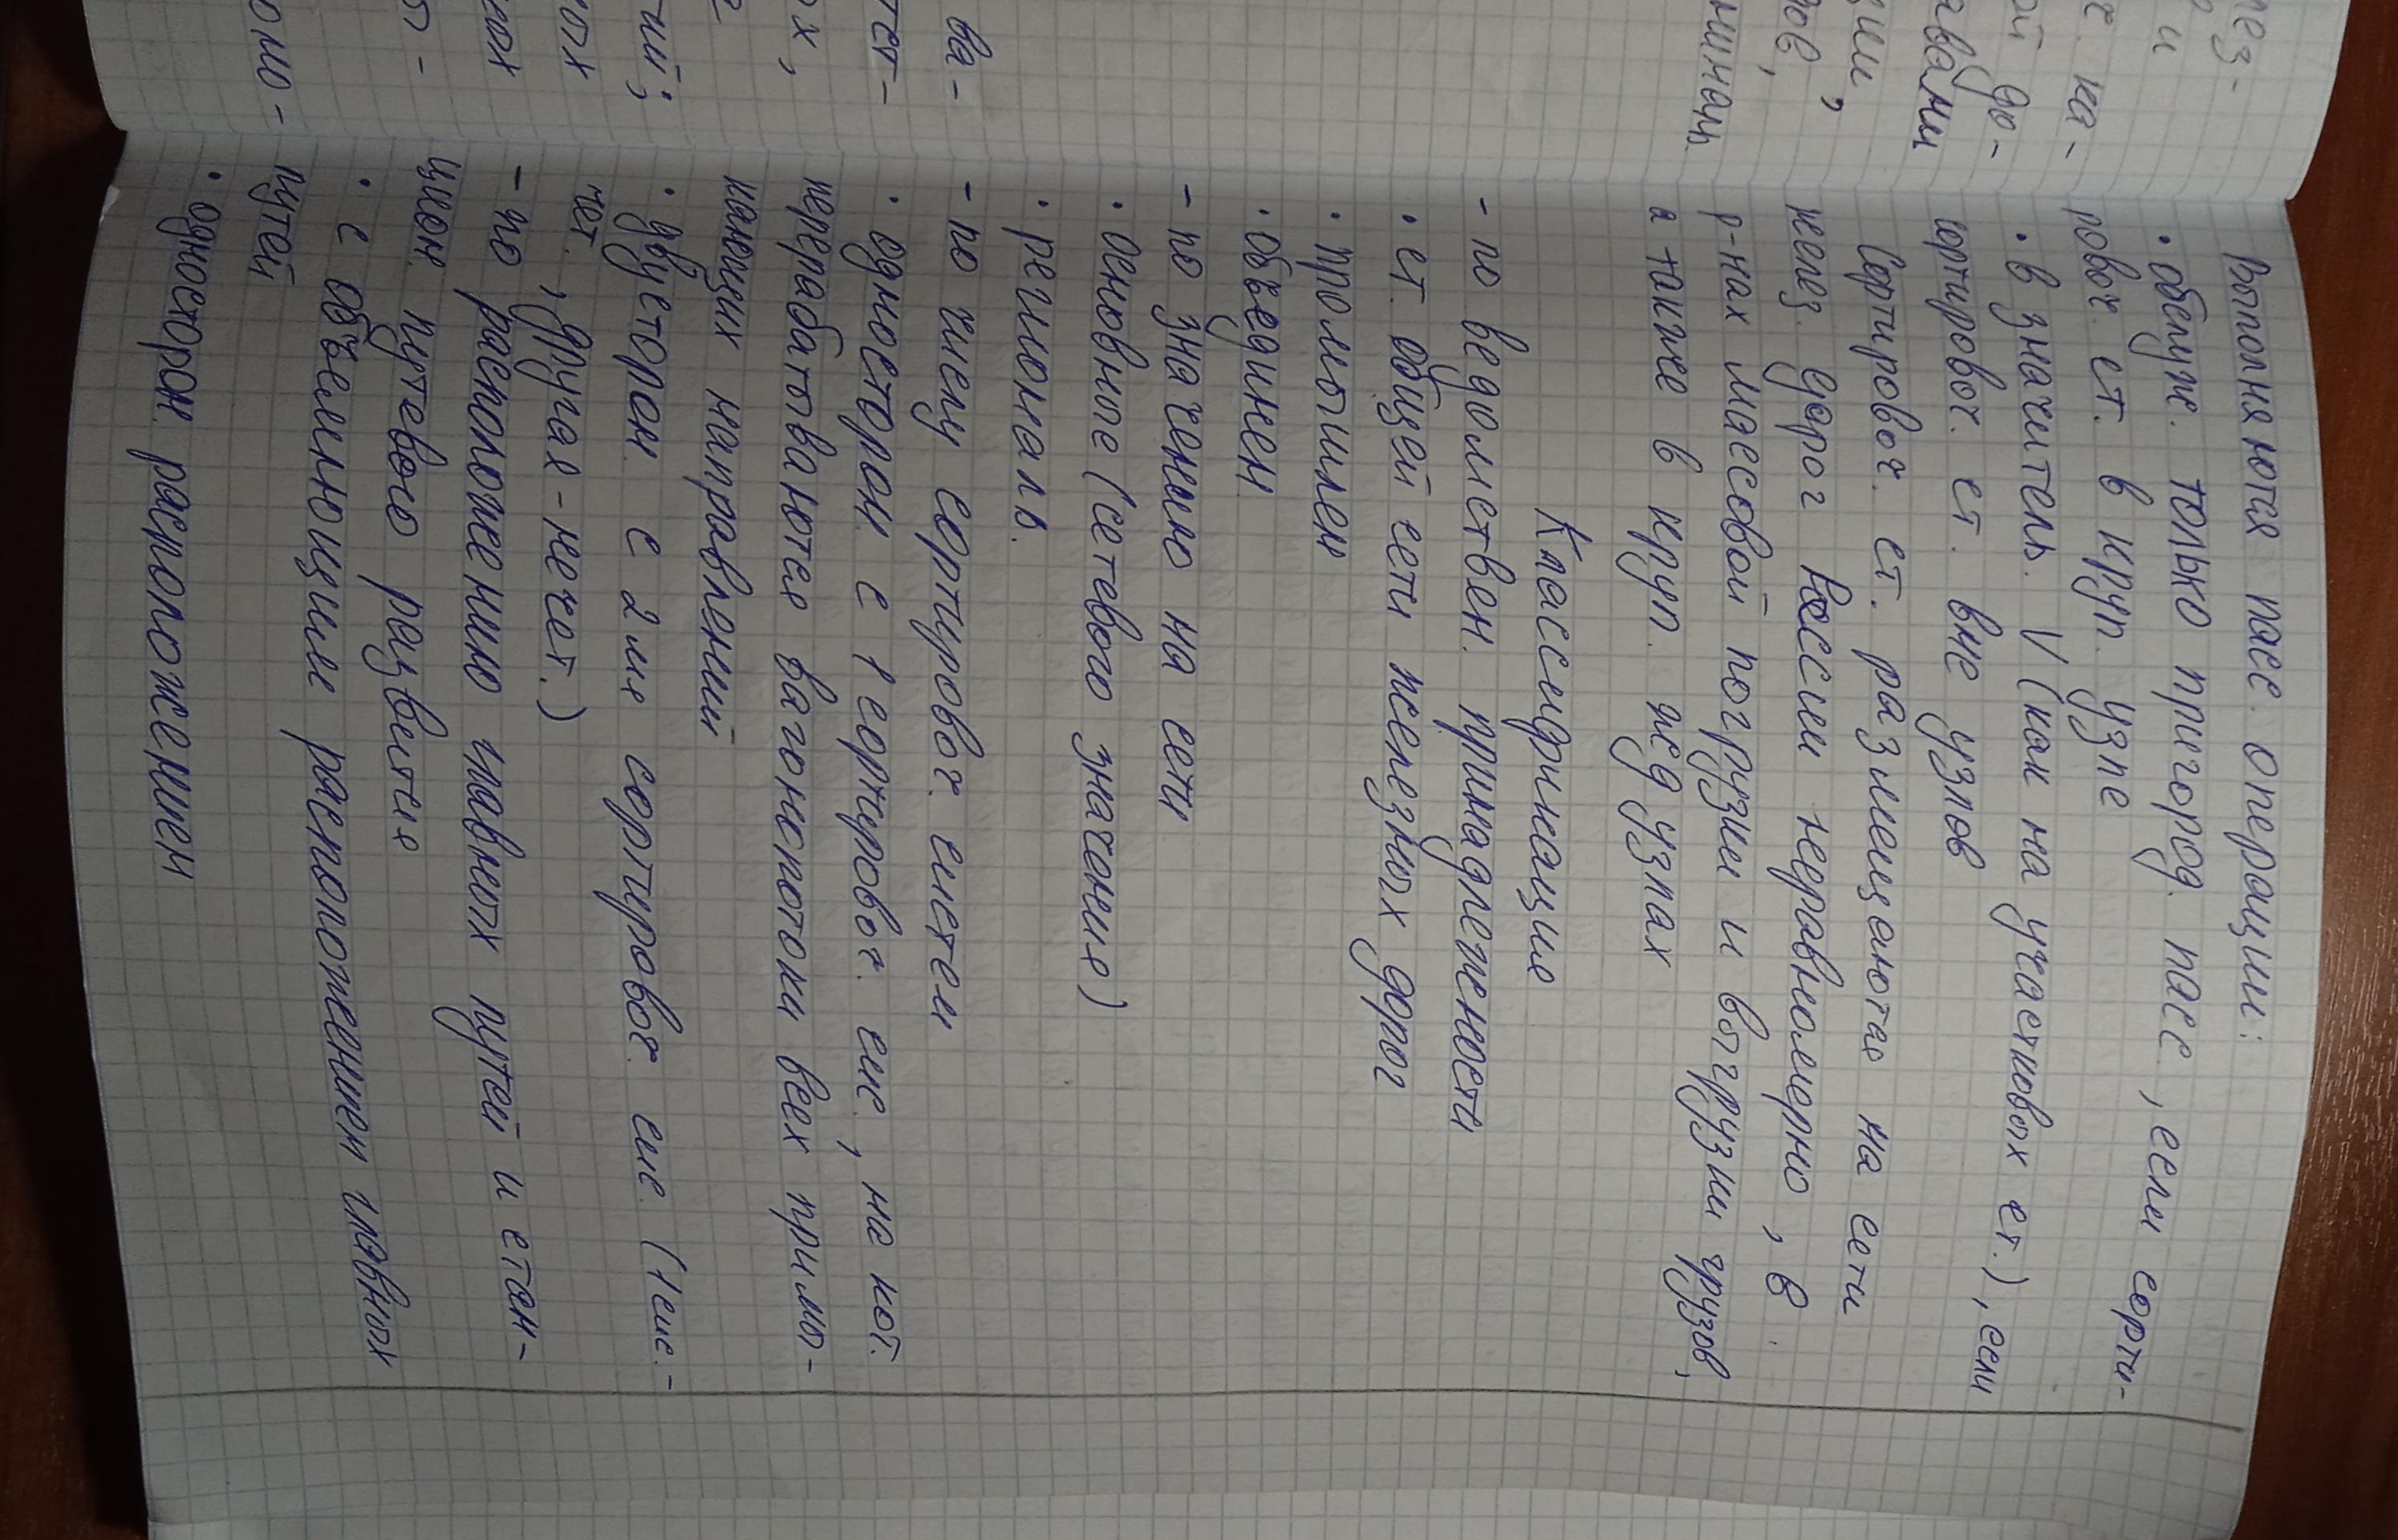 лез-
, и
х. на-
ой до-
авами
ции,
дов,
минации
ва-
тет-
ох,
е
ний;
ных
ских
о-
омо-
Выполняются пасс. операции:
• обслуж. только пригород. пасс., если сорти-
ровоч. ст. в круп. узле
• в значитель. V (как на участковых ст.), если
сортировоч. ст. вне узлов
Сортировоч. ст. размещаются на сети
желез. дорог России неравномерно, в
р-нах массовой погрузки и выгрузки грузов,
а также в круп. жд узлах
Классификация
- по ведомствен. принадлежности
• ст. общей сети железных дорог
• промышлен
• объединен.
- по значению на сети
• основные (сетевого значения)
• региональ.
- по числу сортировоч. систем
• односторон. с 1 сортировоч. сис., на кот.
перерабатываются вагонопотоки всех примы-
кающих направлений
• двусторон. с 2мя сортировоч. сис. (1 сис. -
чет., другая - нечет.)
- по расположению главных путей и стан-
цион. путевого развития
• с объемлющие расположением главных
путей
• односторон. расположением